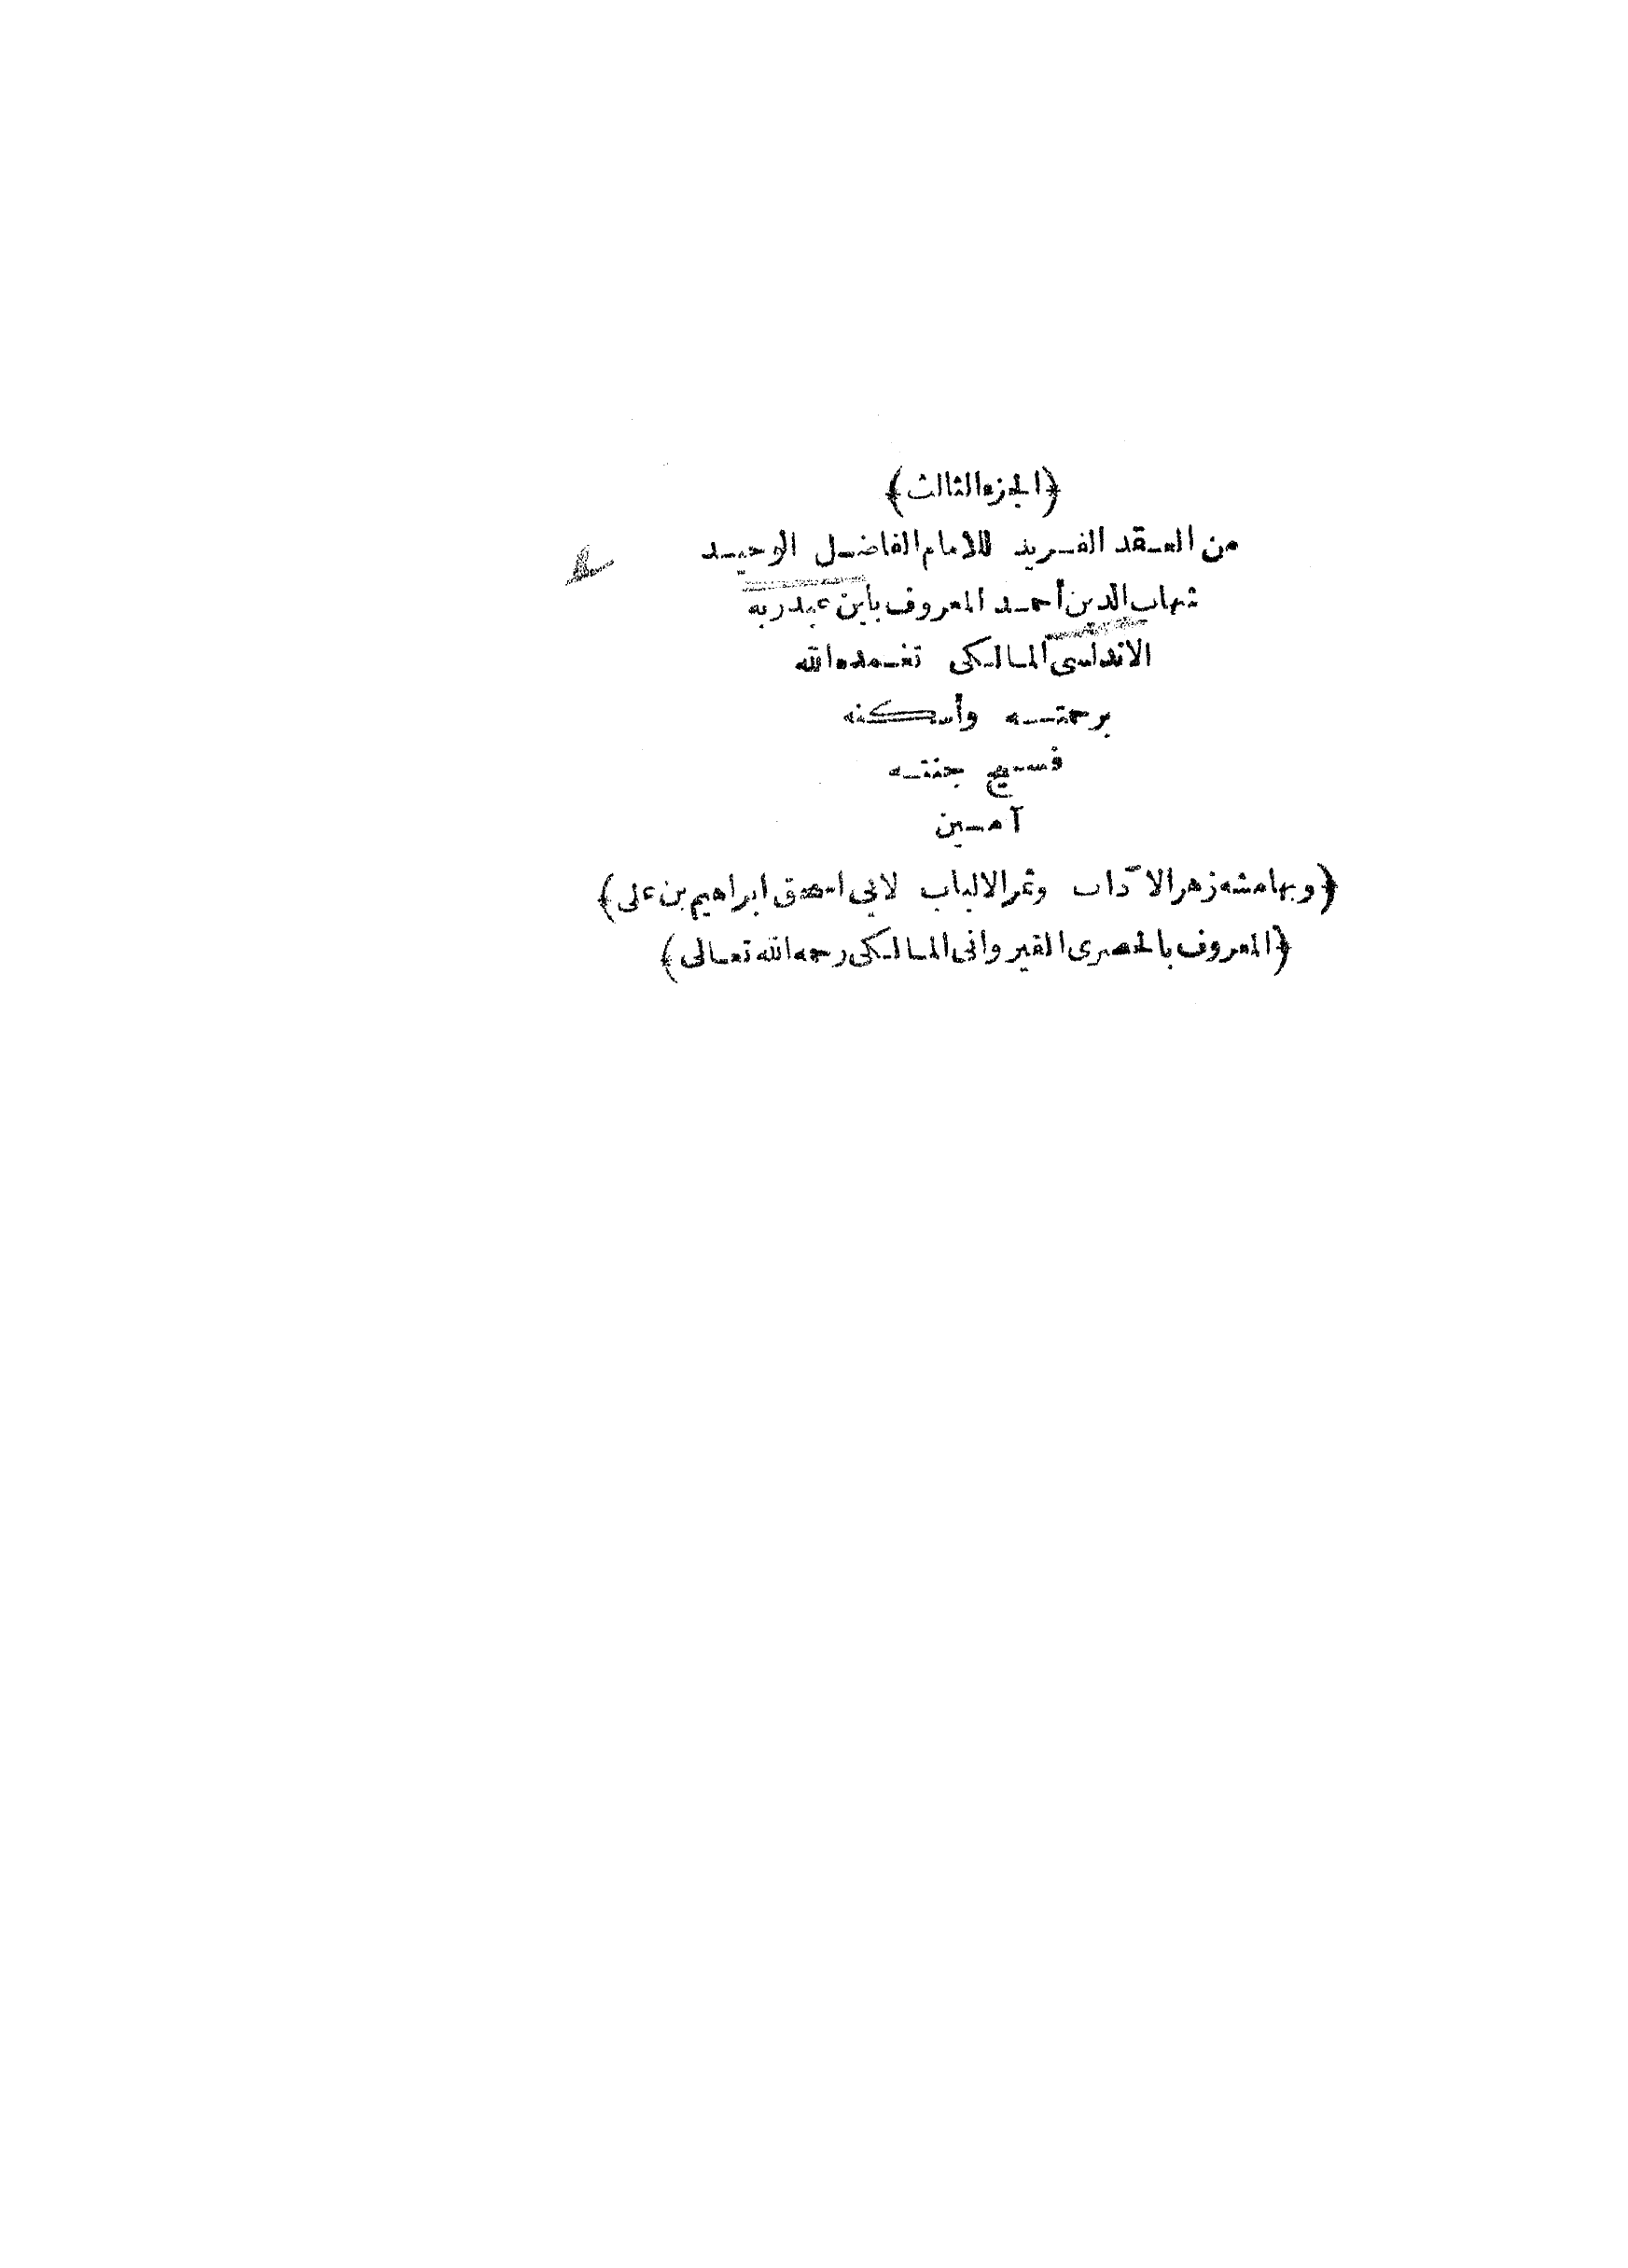 ﴿الجزء الثالث﴾
من العقد الفريد للامام الفاضل الوحيد
شهاب الدين أحمد المعروف بابن عبد ربه
الاندلسى المالكى تغمده الله
برحمته وأسكنه
فسيح جنته
آمين
﴿وبهامشه زهر الآداب وثمر الالباب لابى اسحق ابراهيم بن على﴾
﴿المعروف بالحصرى القيروانى المالكى رحمه الله تعالى﴾